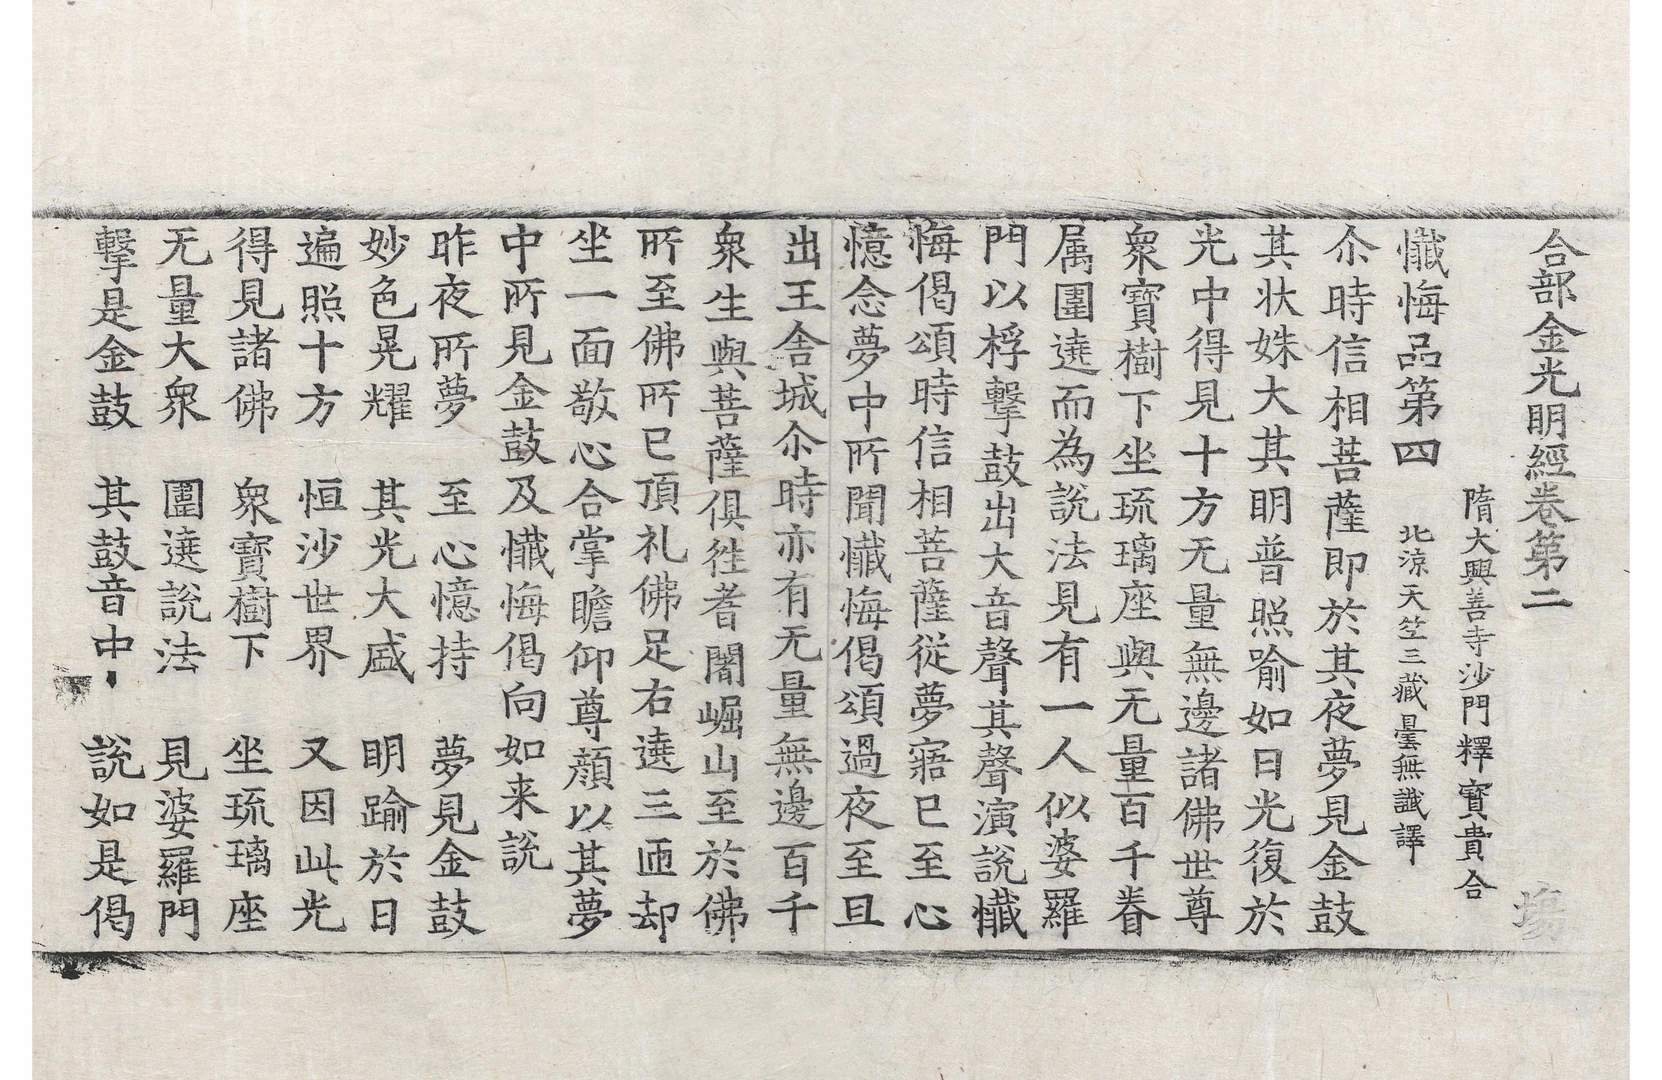 合部金光明經卷第二 塲
隋大興善寺沙門釋寶貴合
懺悔品第四 北涼天竺三藏曇無讖譯
尒時信相菩薩即於其夜夢見金鼓
其状姝大其明普照喻如日光復於
光中得見十方无量無邊諸佛世尊
衆寶樹下坐琉璃座與无量百千眷
属圍遶而為說法見有一人似婆羅
門以桴擊鼓出大音聲其聲演說懺
悔偈頌時信相菩薩從夢寤已至心
憶念夢中所聞懺悔偈頌過夜至旦
出王舍城尒時亦有无量無邊百千
衆生與菩薩俱徃耆闍崛山至於佛
所至佛所已頂礼佛足右遶三匝却
坐一面敬心合掌瞻仰尊顔以其夢
中所見金鼓及懺悔偈向如来說
昨夜所夢 至心憶持 夢見金鼓
妙色晃耀 其光大盛 明踰於日
遍照十方 恒沙世界 又因此光
得見諸佛 衆寶樹下 坐琉璃座
无量大衆 圍遶說法 見婆羅門
擊是金鼓 其鼓音中 說如是偈